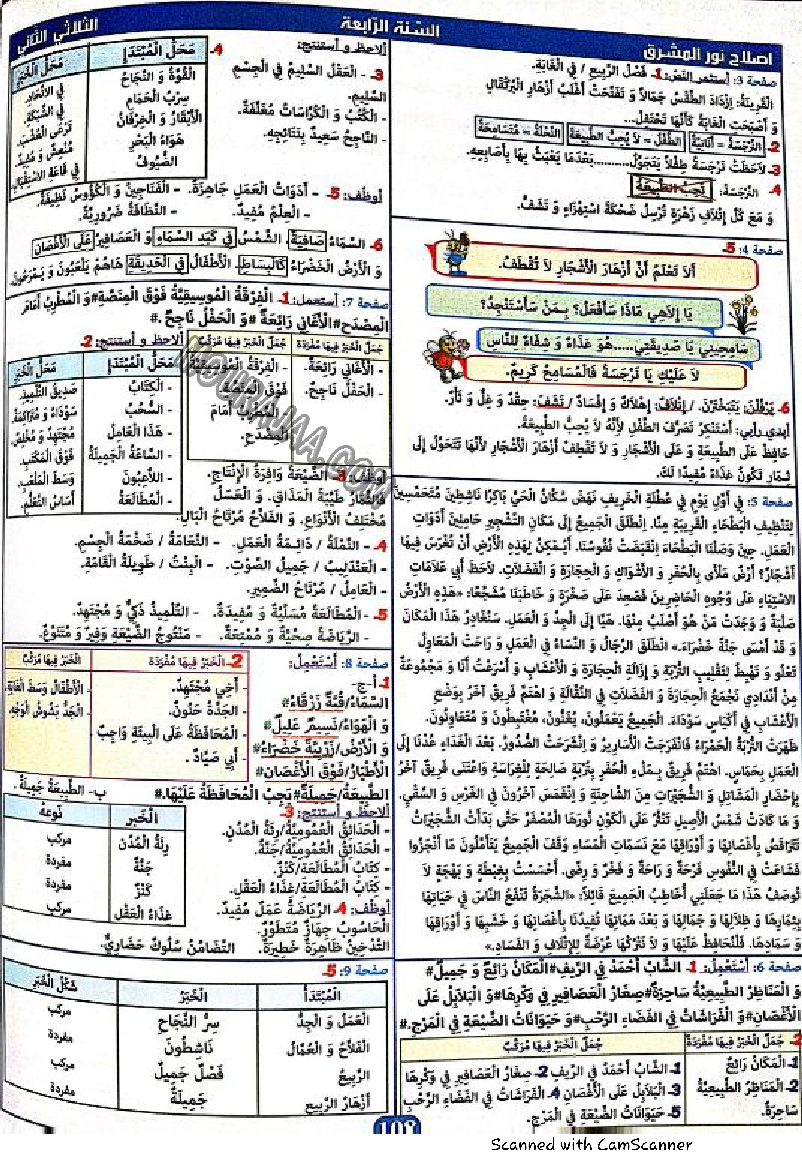 اصلاح نور المشرق
السنة الرابعة
الثلاثي الثاني
صفحة 3: أستثمر النص: 1- فصل الربيع / في الغابة.
القرينة: إزداد الطقس جمالا و تفتحت أغلب أزهار البرتقال
و أصبحت الغابة كأنها تحتفل...
2- النرجسة = أنانية الطفل = لا يحب الطبيعة النحلة = متسامحة
3- لاحظت نرجسة طفلا يتجول..........بعدما يعبث بها بأصابعه.
4- النرجسة: تحب الطبيعة
و مع كل إتلاف زهرة ترسل ضحكة استهزاء و تشف.
صفحة 4: 5-
ألا تعلم أن أزهار الأشجار لا تقطف.
يا إلاهي ماذا سأفعل؟ بمن سأستنجد؟
سامحيني يا صديقتي.....هو غذاء و شفاء للناس
لا عليك يا نرجسة فالمسامح كريم.
6- يرفلن: يتبخترن. / إتلاف: إهلاك و إفساد / تشف: حقد و غل و ثأر.
أبدي رأيي: أستنكر تصرف الطفل لأنه لا يحب الطبيعة.
حافظ على الطبيعة و على الأشجار و لا تقطف أزهار الأشجار لأنها تتحول إلى
ثمار تكون غذاء مفيدا لك.
صفحة 5: في أول يوم في عطلة الخريف نهض سكان الحي باكرا ناشطين متحمسين
لتنظيف البطحاء القريبة منا. إنطلق الجميع إلى مكان التشجير حاملين أدوات
العمل. حين وصلنا البطحاء انقبضت نفوسنا. أيمكن لهذه الأرض أن تغرس فيها
أشجار؟ أرض ملأى بالحفر و الأشواك و الحجارة و الفضلات. لاحظ أبي علامات
الاستياء على وجوه الحاضرين فصعد على صخرة و خاطبنا مشجعا: «هذه الأرض
صلبة و وجدت من هو أصلب منها. هيا إلى الجد و العمل. سنغادر هذا المكان
و قد أمسى جنة خضراء.» انطلق الرجال و النساء في العمل و راحت المعاول
تعلو و تهبط لتقليب التربة و إزالة الحجارة و الأعشاب و أسرعت أنا و مجموعة
من أندادي نجمع الحجارة و الفضلات في النقالة و اهتم فريق آخر بوضع
الأعشاب في أكياس سوداء. الجميع يعملون، يغنون، مغتبطون و متعاونون.
ظهرت التربة الحمراء فانفرجت الأسارير و انشرحت الصدور. بعد الغداء عدنا إلى
العمل بحماس. اهتم فريق بملء الحفر بتربة صالحة للغراسة واعتنى فريق آخر
بإحضار المشاتل و الشجيرات من الشاحنة و إنغمس آخرون في الغرس و السقي.
و ما كادت شمس الأصيل تنثر على الكون نورها المصفر حتى بدأت الشجيرات
تتراقص بأغصانها و أوراقها مع نسمات المساء وقف الجميع يتأملون ما أنجزوا
فشاعت في النفوس فرحة و راحة و فخر و رضى. أحسست بغبطة و بهجة لا
توصف هذا ما جعلني أخاطب الجميع قائلا: «الشجرة تنفع الناس في حياتها
بثمارها و ظلالها و جمالها و بعد مماتها تفيدنا بأغصانها و خشبها و أوراقها
و سمادها. فلنحافظ عليها و لا نتركها عرضة للإتلاف و الفساد.»
صفحة 6: أستعمل: 1- الشاب أحمد في الريف#المكان رائع و جميل#
و المناظر الطبيعية ساحرة#صغار العصافير في وكرها#و البلابل على
الأغصان#و الفراشات في الفضاء الرحب#و حيوانات الضيعة في المرج.#
2- جمل الخبر فيها مفردة
جمل الخبر فيها مركب
1- المكان رائع
1- الشاب أحمد في الريف 2- صغار العصافير في وكرها
2- المناظر الطبيعية
3- البلابل على الأغصان 4- الفراشات في الفضاء الرحب
ساحرة.
5- حيوانات الضيعة في المرج.
ألاحظ و أستنتج:
3- - العقل السليم في الجسم
السليم.
- الكتب و الكراسات مغلفة.
- الناجح سعيد بنتائجه.
4-
محل المبتدإ
محل الخبر
القوة و النجاح
في الاتحاد.
سرب الحمام
في الشبكة
الأبقار و الخرفان
ترعى العشب.
هواء البحر
منعش و مفيد.
الضيوف
في قاعة الاستقبال.
أوظف: 5- - أدوات العمل جاهزة. - الفناجين و الكؤوس نظيفة.
- العلم مفيد. - النظافة ضرورية.
6- السماء صافية، الشمس في كبد السماء و العصافير على الأغصان
و الأرض الخضراء كالبساط. الأطفال في الحديقة هاهم يلعبون و يمرحون.
صفحة 7: أستعمل: 1- الفرقة الموسيقية فوق المنصة#و المطرب أمام
المصدح#الأغاني رائعة #و الحفل ناجح .#
جمل الخبر فيها مفردة
جمل الخبر فيها مركب
- الأغاني رائعة.
- الفرقة الموسيقية
- الحفل ناجح.
فوق المنصة
- المطرب أمام
المصدح.
ألاحظ و أستنتج: 2-
محل المبتدإ
محل الخبر
- الكتاب
صديق التلميذ.
- السحب
سوداء و متراكمة.
- هذا العامل
مجتهد و مخلص.
- الساعة الجميلة
فوق المكتب.
- اللاعبون
وسط الملعب.
- المطالعة
أساس التعلم.
أوظف: 3- الضيعة وافرة الإنتاج.
- الثمار طيبة المذاق. - و العسل
مختلف الأنواع. و الفلاح مرتاح البال.
4- - النملة / دائمة العمل. - النعامة / ضخمة الجسم.
- العندليب / جميل الصوت. - البنت / طويلة القامة.
- العامل / مرتاح الضمير.
5- - المطالعة مسلية و مفيدة. - التلميذ ذكي و مجتهد.
- الرياضة صحية و ممتعة. - منتوج الضيعة وفير و متنوع.
صفحة 8: أستعمل:
1- أ-ج-
السماء/قبة زرقاء#
و الهواء/نسيم عليل#
و الأرض/زربية خضراء#
الأطيار/فوق الأغصان#
الطبيعة/جميلة#يجب المحافظة عليها.# ب- الطبيعة جميلة.
2- الخبر فيها مفردة
الخبر فيها مركب
- أخي مجتهد.
- الأطفال وسط القاعة.
- الجدة حنون.
- الجد بشوش الوجه.
- المحافظة على البيئة واجب
- أبي صياد.
ألاحظ و أستنتج: 3-
- الحدائق العمومية/رئة المدن.
- الحدائق العمومية/جنة.
- كتاب المطالعة/كنز.
- كتاب المطالعة/غذاء العقل.
الخبر
نوعه
رئة المدن
مركب
جنة
مفردة
كنز
مفردة
غذاء العقل
مركب
أوظف: 4- الرياضة عمل مفيد.
الحاسوب جهاز متطور.
التدخين ظاهرة خطيرة. التضامن سلوك حضاري.
صفحة 9: 5-
المبتدأ
الخبر
شكل الخبر
العمل و الجد
سر النجاح
مركب
الفلاح و العمال
ناشطون
مفردة
الربيع
فصل جميل
مركب
أزهار الربيع
جميلة
مفردة
108
MOURAJAA.COM
Scanned with CamScanner